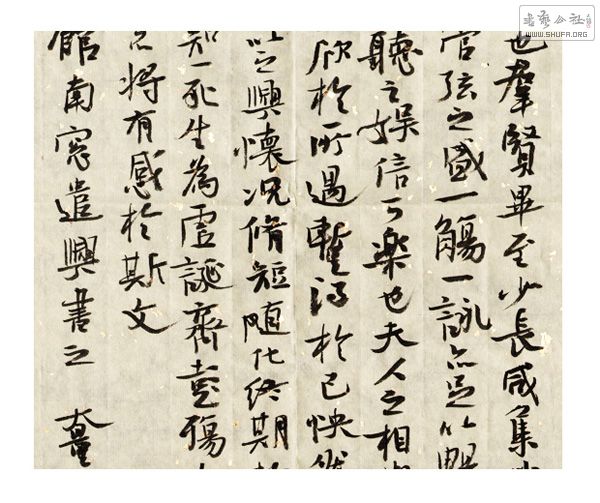 書藝公社
WWW.SHUFA.ORG
也羣賢畢至少長咸集
管弦之盛一觴一詠亦足以暢
聽之娱信可楽也夫人之相
欣於所遇暫得於己怏然
以之興懷况脩短随化終期
知一死生為虚誕齊彭殤
亦將有感於斯文
館南窓遣興書之 大量